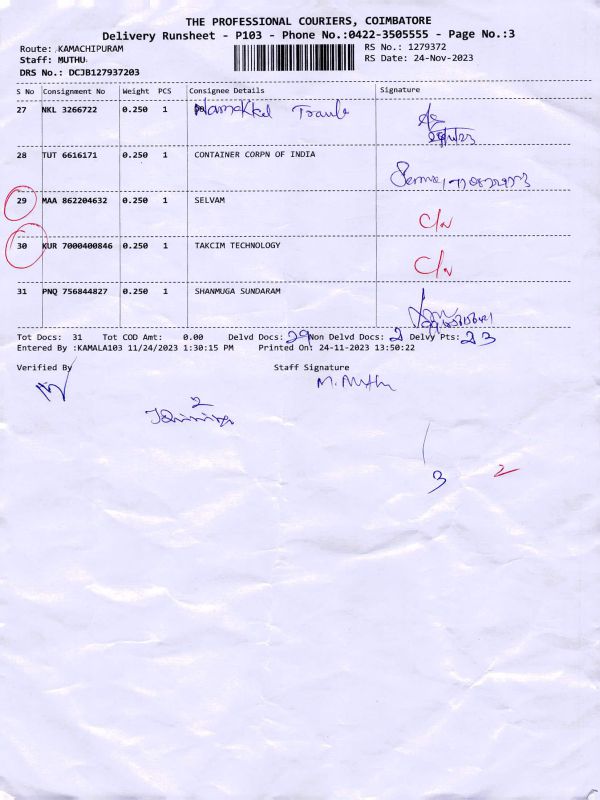 THE PROFESSIONAL COURIERS, COIMBATORE
Delivery Runsheet - P103 - Phone No.:0422-3505555 - Page No.:3
Route: KAMACHIPURAM RS No.: 1279372
Staff: MUTHU RS Date: 24-Nov-2023
DRS No.: DCJB127937203
S No Consignment No Weight PCS Consignee Details Signature
27 NKL 3266722 0.250 1 Namakkal
28 TUT 6616171 0.250 1 CONTAINER CORPN OF INDIA
29 MAA 862204632 0.250 1 SELVAM C/N
30 KUR 7000400846 0.250 1 TAKCIM TECHNOLOGY C/N
31 PNQ 756844827 0.250 1 SHANMUGA SUNDARAM
Tot Docs: 31 Tot COD Amt: 0.00 Delvd Docs: 29 Non Delvd Docs: 2 Delvy Pts: 23
Entered By :KAMALA103 11/24/2023 1:30:15 PM Printed On: 24-11-2023 13:50:22
Verified By Staff Signature
M. Muthu
2
3 2